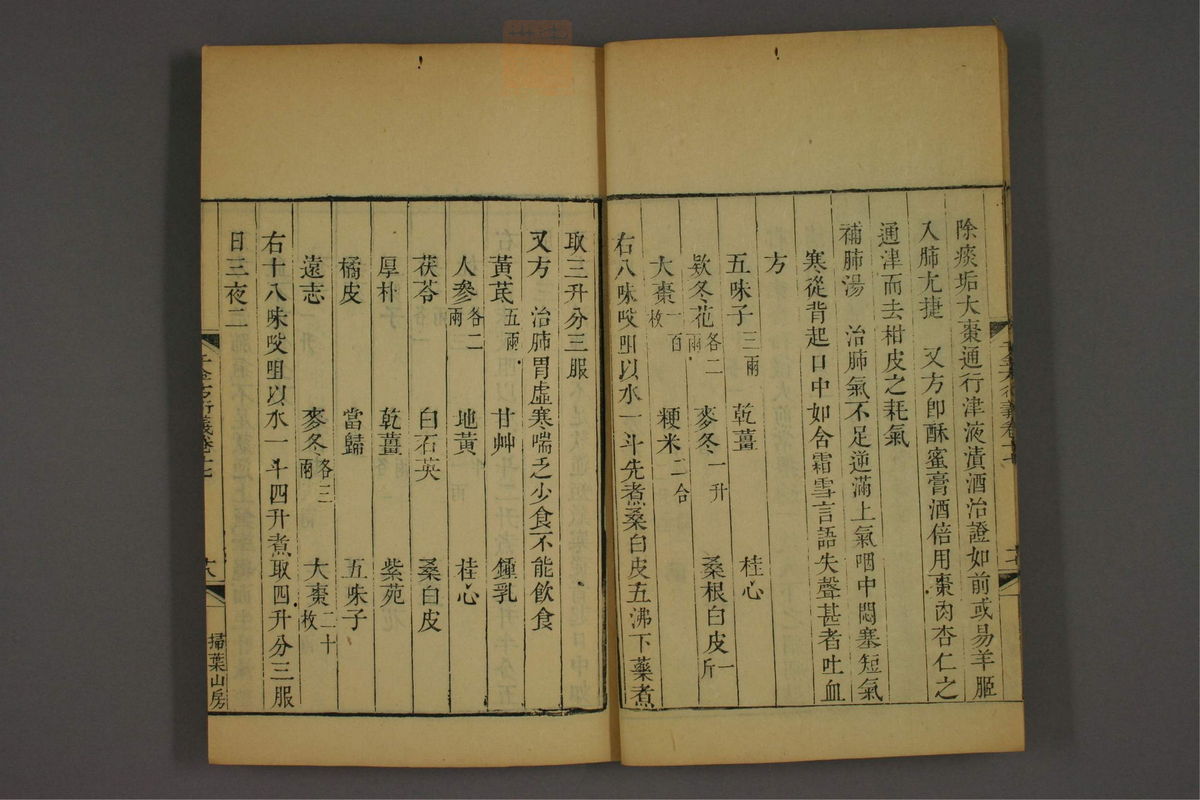 除痰垢大棗通行津液漬酒治證如前或易羊脂
入肺尤捷　又方卽酥蜜膏酒倍用棗肉杏仁之
通津而去柑皮之耗氣
補肺湯　治肺氣不足逆滿上氣咽中悶塞短氣
寒從背起口中如含霜雪言語失聲甚者吐血
方
五味子三兩　乾薑　桂心
款冬花各二兩　麥冬一升　桑根白皮一斤
大棗一百枚　粳米二合
右八味㕮咀以水一斗先煮桑白皮五沸下藥煮
取三升分三服
又方　治肺胃虛寒喘乏少食不能飲食
黃芪五兩　甘艸　鍾乳
人參各二兩　地黃　桂心
茯苓　白石英　桑白皮
厚朴　乾薑　紫苑
橘皮　當歸　五味子
遠志　麥冬各三兩　大棗二十枚
右十八味㕮咀以水一斗四升煮取四升分三服
日三夜二
掃葉山房